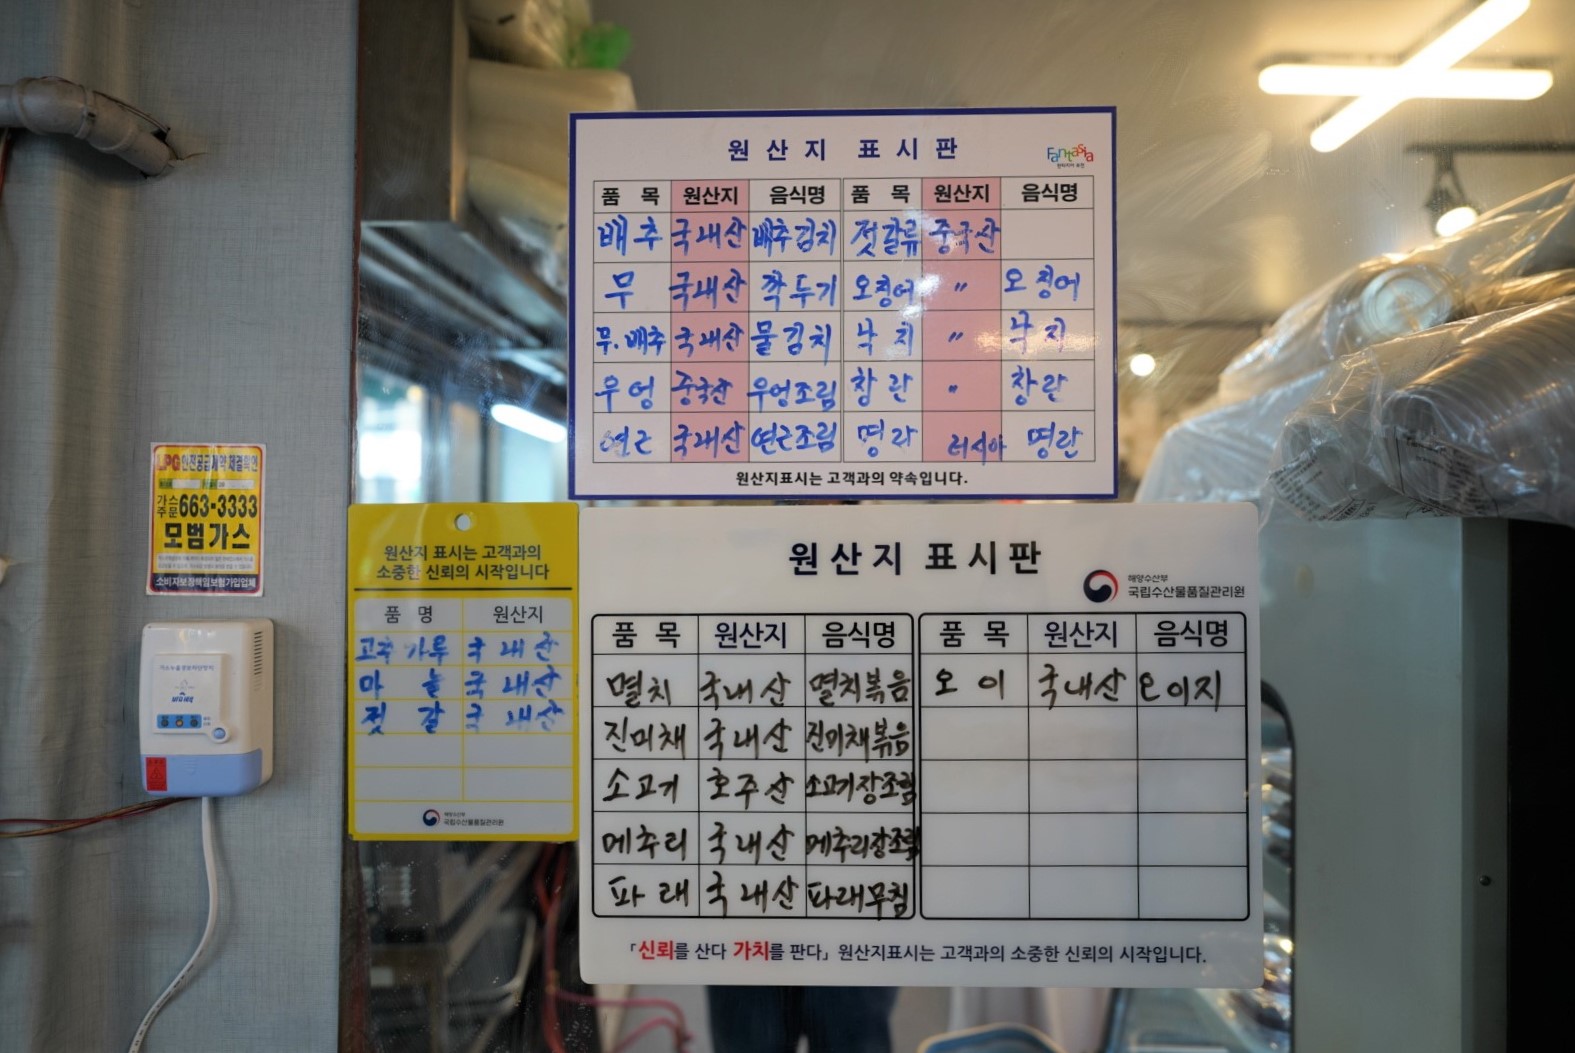 원산지 표시판
Fantasia
품 목 원산지 음식명 품 목 원산지 음식명
배추 국내산 배추김치 젓갈류 중국산
무 국내산 깍두기 오징어 〃 오징어
무.배추 국내산 물김치 낙지 〃 낙지
우엉 중국산 우엉조림 창란 〃 창란
연근 국내산 연근조림 명란 러시아 명란
원산지표시는 고객과의 약속입니다.
LPG 안전공급계약 체결확인
가스
주문 663-3333
모범가스
소비자보장책임보험가입업체
원산지 표시는 고객과의
소중한 신뢰의 시작입니다
품 명 원산지
고추가루 국내산
마늘 국내산
젓갈 국내산
해양수산부
국립수산물품질관리원
원산지 표시판
해양수산부
국립수산물품질관리원
품 목 원산지 음식명 품 목 원산지 음식명
멸치 국내산 멸치볶음 오이 국내산 오이지
진미채 국내산 진미채볶음
소고기 호주산 소고기장조림
메추리 국내산 메추리장조림
파래 국내산 파래무침
「신뢰를 산다 가치를 판다」 원산지표시는 고객과의 소중한 신뢰의 시작입니다.